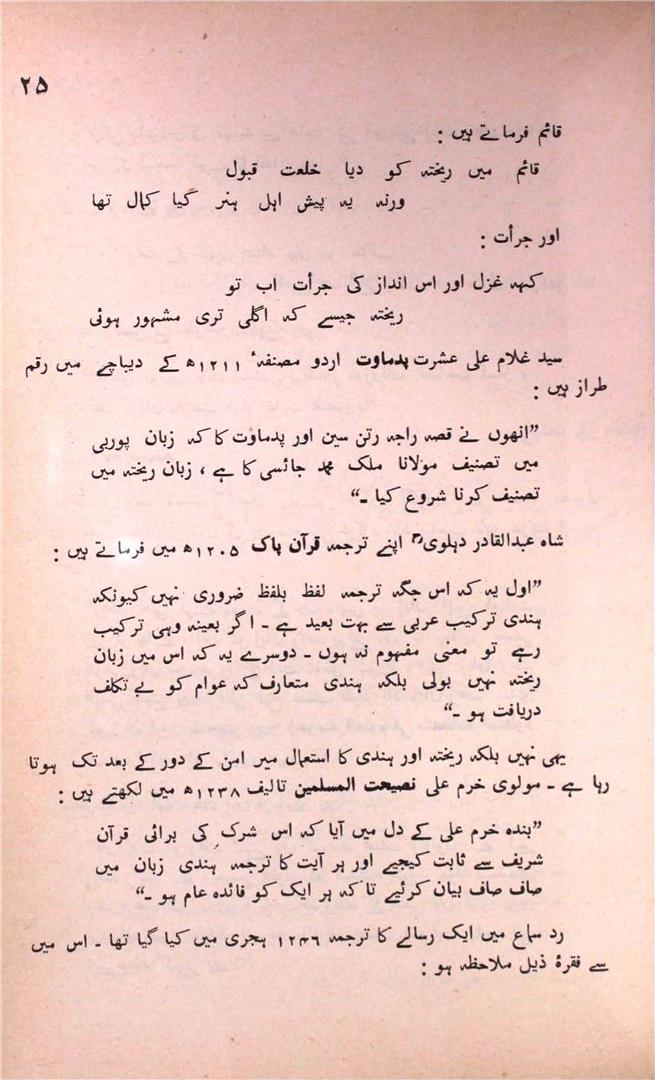 ۲۵
قائم فرماتے ہیں :
قائم میں ریختہ کو دیا خلعت قبول
ورنہ یہ پیش اہل ہنر گیا کمال تھا
اور جرأت :
کہہ غزل اور اس انداز کی جرأت اب تو
ریختہ جیسے کہ اگلی تری مشہور ہوئی
سید غلام علی عشرت پدماوت اردو مصنفہٴ ۱۲۱۱ھ کے دیباچے میں رقم
طراز ہیں :
”انھوں نے قصہ راجہ رتن سین اور پدماوت کا کہ زبان پوربی
میں تصنیف مولانا ملک محمد جائسی کا ہے ، زبان ریختہ میں
تصنیف کرنا شروع کیا ۔“
شاہ عبدالقادر دہلویؒ اپنے ترجمہ قرآن پاک ۱۲۰۵ھ میں فرماتے ہیں :
”اول یہ کہ اس جگہ ترجمہ لفظ بلفظ ضروری نہیں کیونکہ
ہندی ترکیب عربی سے بہت بعید ہے ۔ اگر بعینہ وہی ترکیب
رہے تو معنی مفہوم نہ ہوں ۔ دوسرے یہ کہ اس میں زبان
ریختہ نہیں بولی بلکہ ہندی متعارف کہ عوام کو بے تکلف
دریافت ہو ۔“
یہی نہیں بلکہ ریختہ اور ہندی کا استعمال میر امن کے دور کے بعد تک ہوتا
رہا ہے ۔ مولوی خرم علی نصیحت المسلمین تالیف ۱۲۳۸ھ میں لکھتے ہیں :
”بندہ خرم علی کے دل میں آیا کہ اس شرک کی برائی قرآن
شریف سے ثابت کیجیے اور ہر آیت کا ترجمہ ہندی زبان میں
صاف صاف بیان کرئیے تا کہ ہر ایک کو فائدہ عام ہو ۔“
رد سماع میں ایک رسالے کا ترجمہ ۱۲۴۶ ہجری میں کیا گیا تھا ۔ اس میں
سے فقرۂ ذیل ملاحظہ ہو :